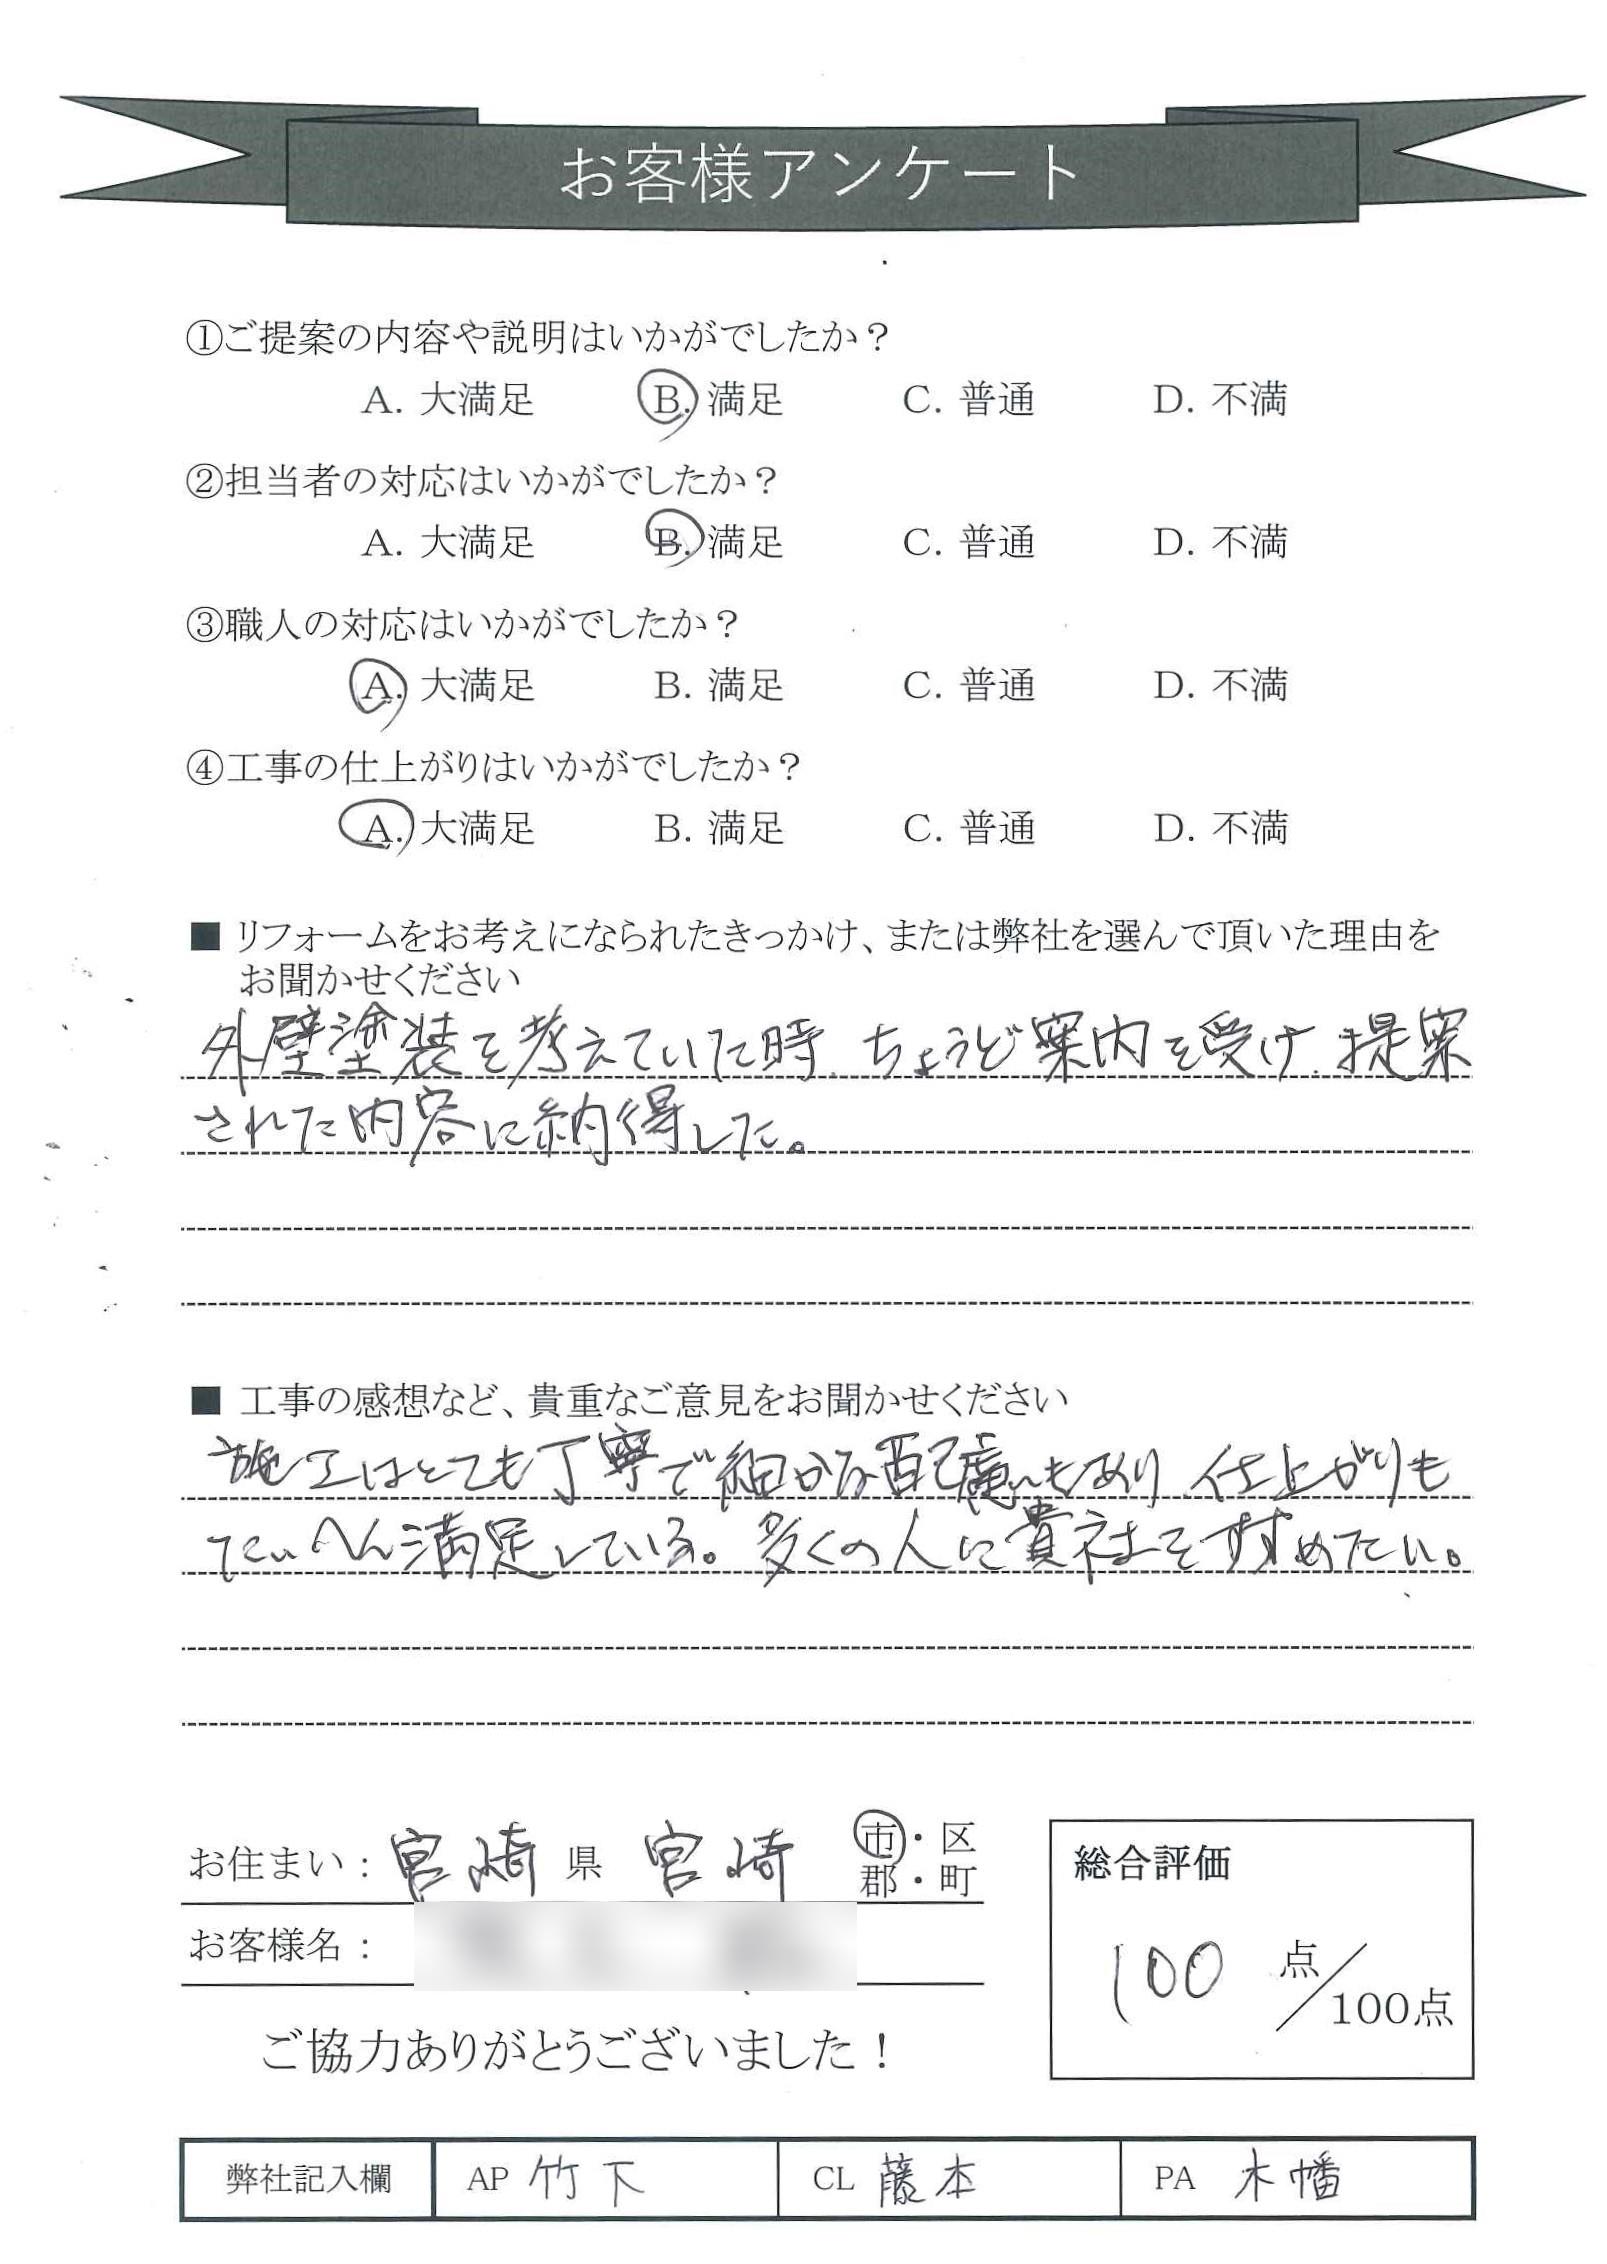 お客様アンケート
①ご提案の内容や説明はいかがでしたか？
A. 大満足 B. 満足 C. 普通 D. 不満
②担当者の対応はいかがでしたか？
A. 大満足 B. 満足 C. 普通 D. 不満
③職人の対応はいかがでしたか？
A. 大満足 B. 満足 C. 普通 D. 不満
④工事の仕上がりはいかがでしたか？
A. 大満足 B. 満足 C. 普通 D. 不満
■ リフォームをお考えになられたきっかけ、または弊社を選んで頂いた理由を
お聞かせください
外壁塗装を考えていた時、ちょうど案内を受け、提案
された内容に納得した。
■ 工事の感想など、貴重なご意見をお聞かせください
施工はとても丁寧で細かな配慮もあり、仕上がりも
たいへん満足している。多くの人に貴社をすすめたい。
お住まい： 宮崎 県 宮崎 市・区
郡・町
お客様名：
総合評価
100 点／100点
ご協力ありがとうございました！
弊社記入欄 AP 竹下 CL 藤本 PA 木幡